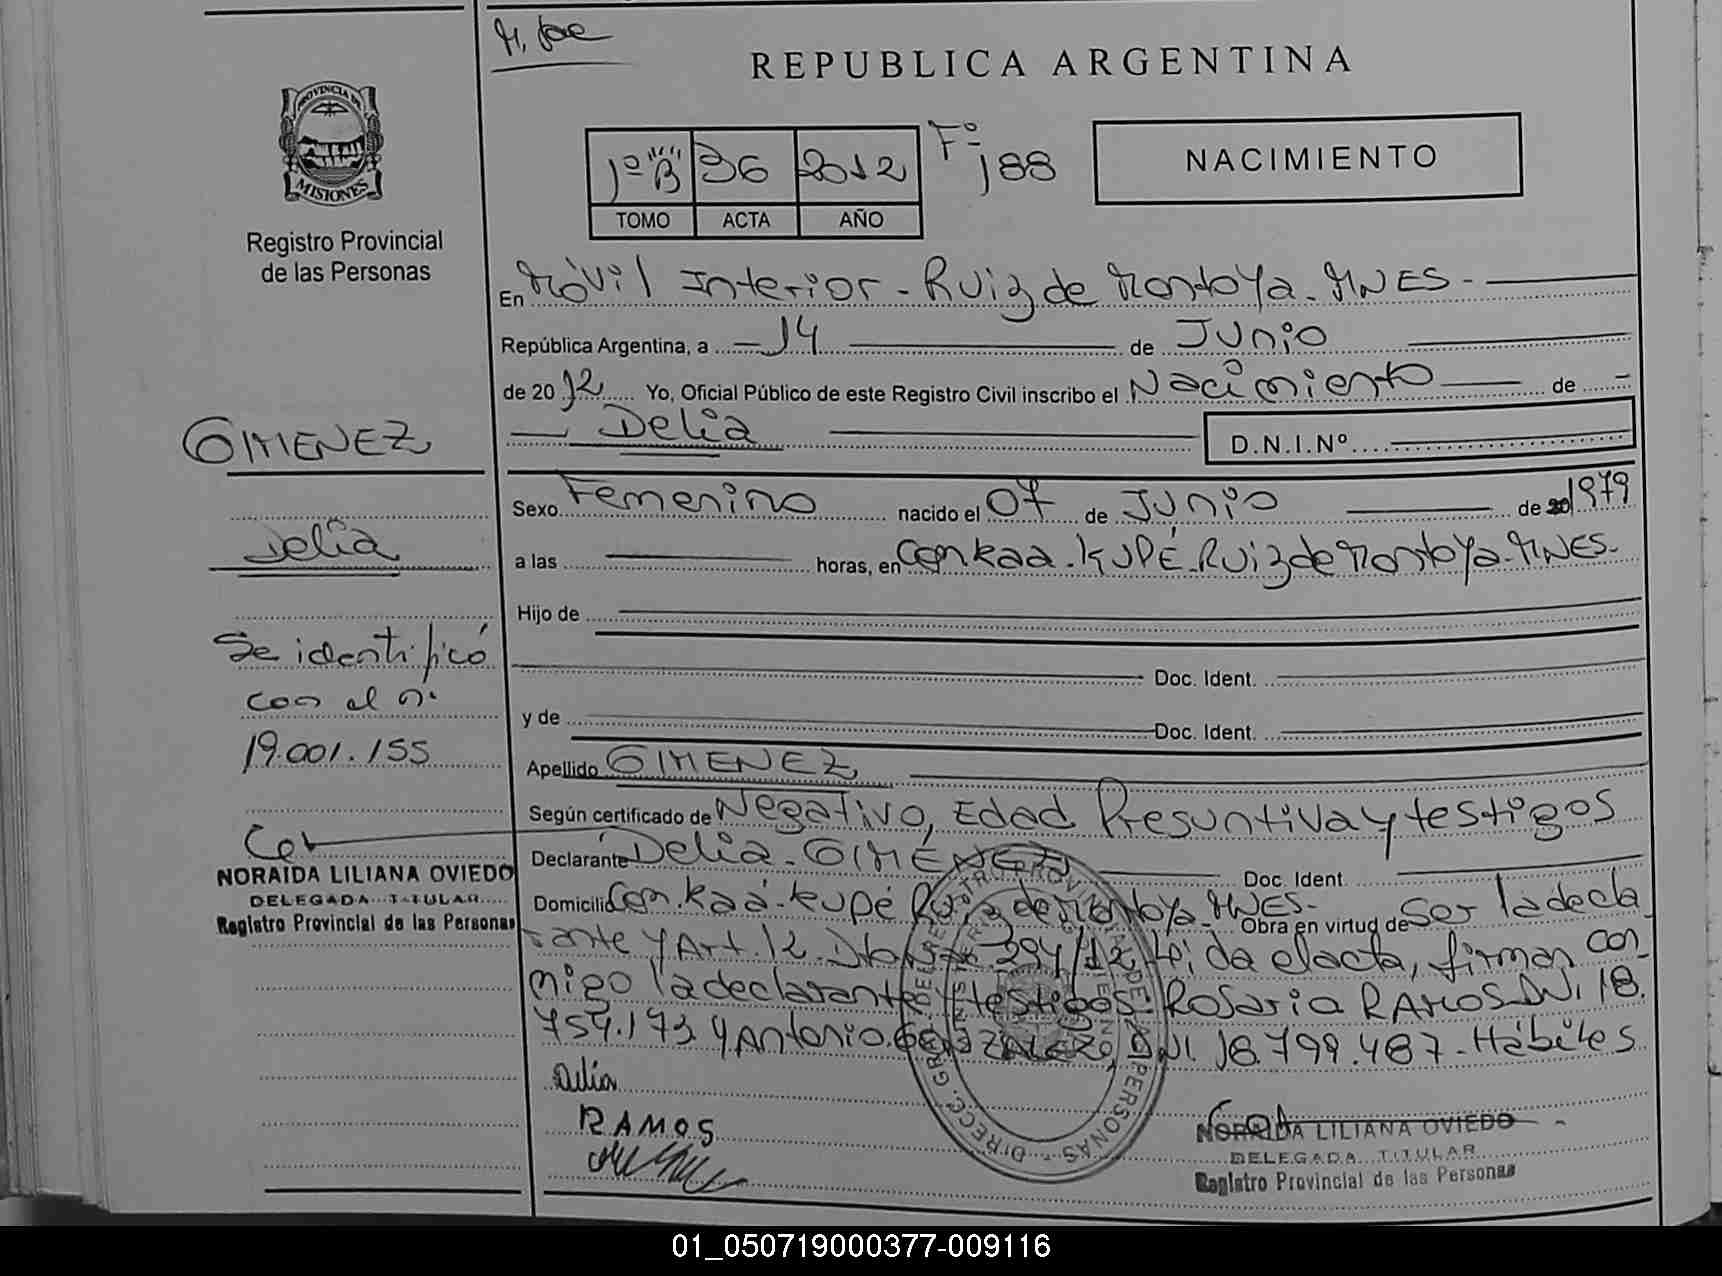 REPUBLICA ARGENTINA
PROVINCIA DE
MISIONES
Registro Provincial
de las Personas
1º "B" 36 2012 Fº 188
TOMO ACTA AÑO
NACIMIENTO
En Móvil Interior - Ruiz de Montoya - MNES -
República Argentina, a 14 de Junio
de 2012 Yo, Oficial Público de este Registro Civil inscribo el Nacimiento de
Delia D.N.I.Nº
Sexo Femenino nacido el 07 de Junio de 1979
a las horas, en Com. Kaa - KUPÉ - Ruiz de Montoya - MNES -
Hijo de
Doc. Ident.
y de Doc. Ident.
Apellido GIMENEZ
Según certificado de Negativo, Edad Presuntiva y testigos
Declarante Delia - GIMÉNEZ Doc. Ident.
Domicilio Com. Kaá - kupé Ruiz de Montoya - MNES - Obra en virtud de ser la decla
rante y Art. 12 294/12 Leída el acta, firman con
migo la declarante y testigos Rosaria RAMOS DNI 18.
759.173 y Antonio GONZALEZ, DNI 18.799.487 - Hábiles
Delia
RAMOS
NORAIDA LILIANA OVIEDO
DELEGADA TITULAR
Registro Provincial de las Personas
GIMENEZ
Delia
Se identificó
con el nº
19.001.155
NORAIDA LILIANA OVIEDO
DELEGADA TITULAR
Registro Provincial de las Personas
01_050719000377-009116